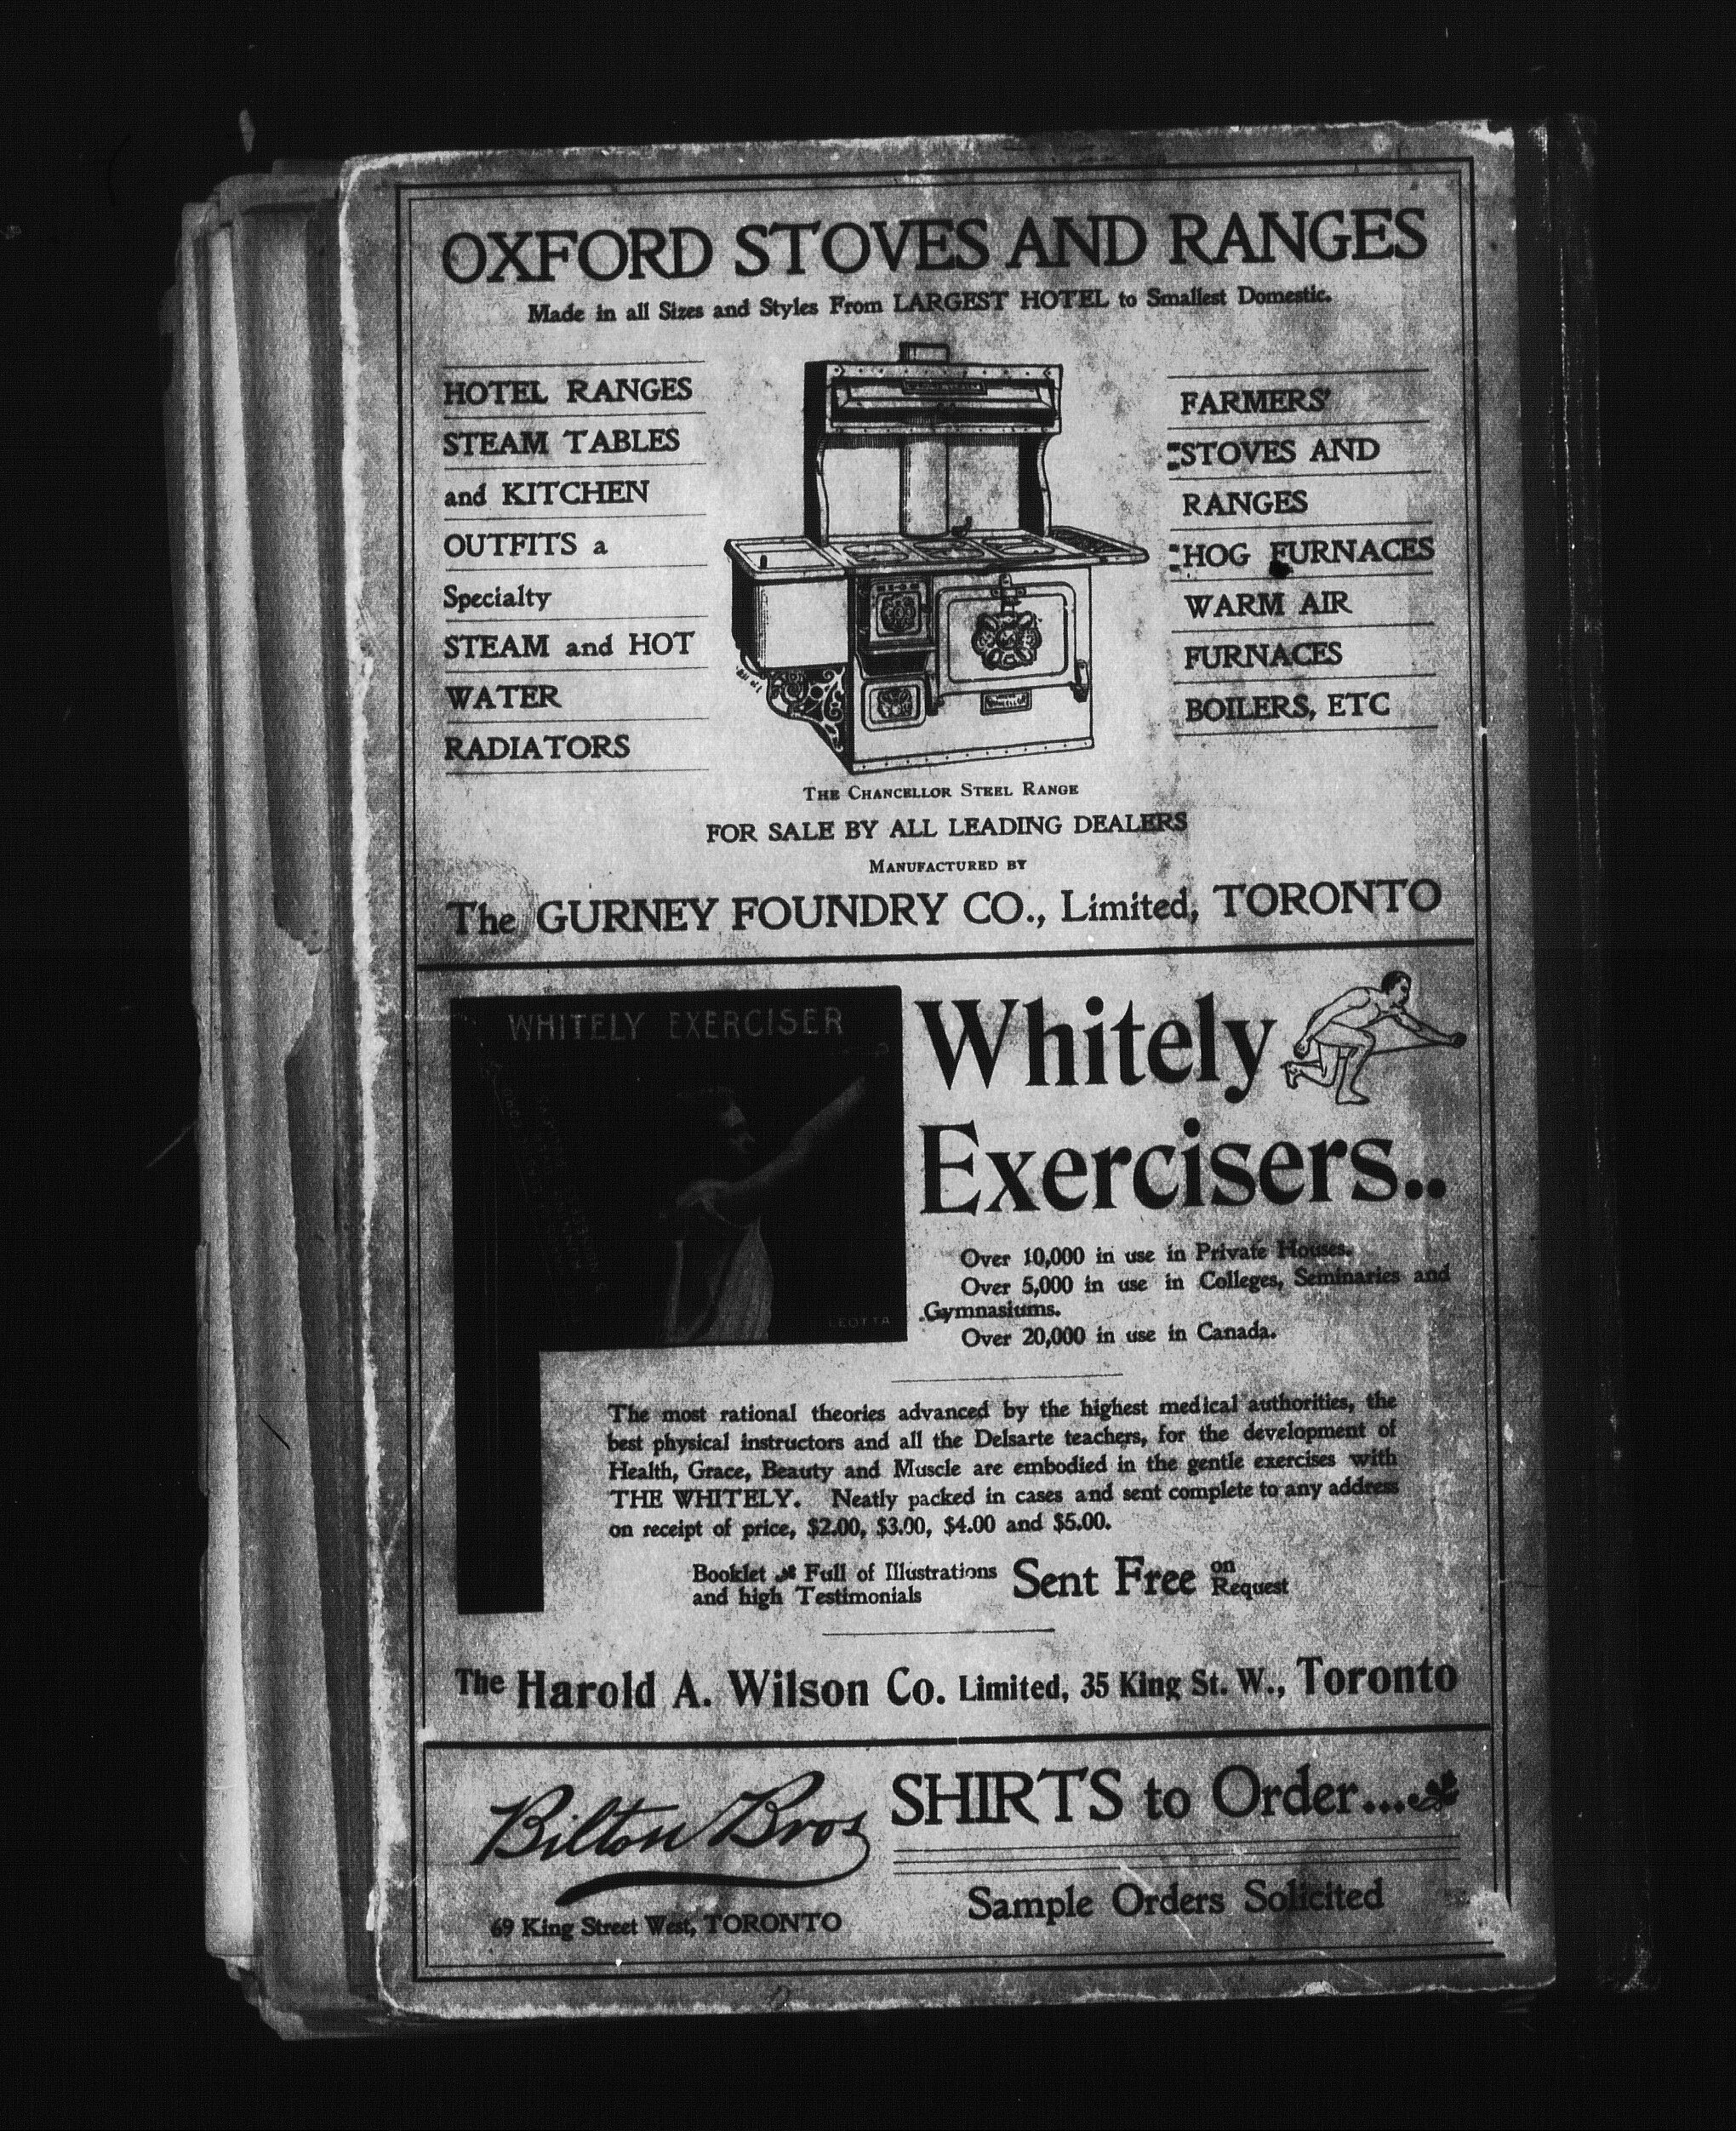 OXFORD STOVES AND RANGES
Made in all Sizes and Styles From LARGEST HOTEL to Smallest Domestic.
HOTEL RANGES
STEAM TABLES
and KITCHEN
OUTFITS a
Specialty
STEAM and HOT
WATER
RADIATORS
FARMERS'
STOVES AND
RANGES
HOG FURNACES
WARM AIR
FURNACES
BOILERS, ETC
THE CHANCELLOR STEEL RANGE
FOR SALE BY ALL LEADING DEALERS
MANUFACTURED BY
The GURNEY FOUNDRY CO., Limited, TORONTO
WHITELY EXERCISER
LEOTTA
Whitely
Exercisers..
Over 10,000 in use in Private Houses.
Over 5,000 in use in Colleges, Seminaries and
Gymnasiums.
Over 20,000 in use in Canada.
The most rational theories advanced by the highest medical authorities, the
best physical instructors and all the Delsarte teachers, for the development of
Health, Grace, Beauty and Muscle are embodied in the gentle exercises with
THE WHITELY. Neatly packed in cases and sent complete to any address
on receipt of price, $2.00, $3.00, $4.00 and $5.00.
Booklet Full of Illustrations
and high Testimonials
Sent Free on Request
The Harold A. Wilson Co. Limited, 35 King St. W., Toronto
Bilton Bros
69 King Street West, TORONTO
SHIRTS to Order...
Sample Orders Solicited